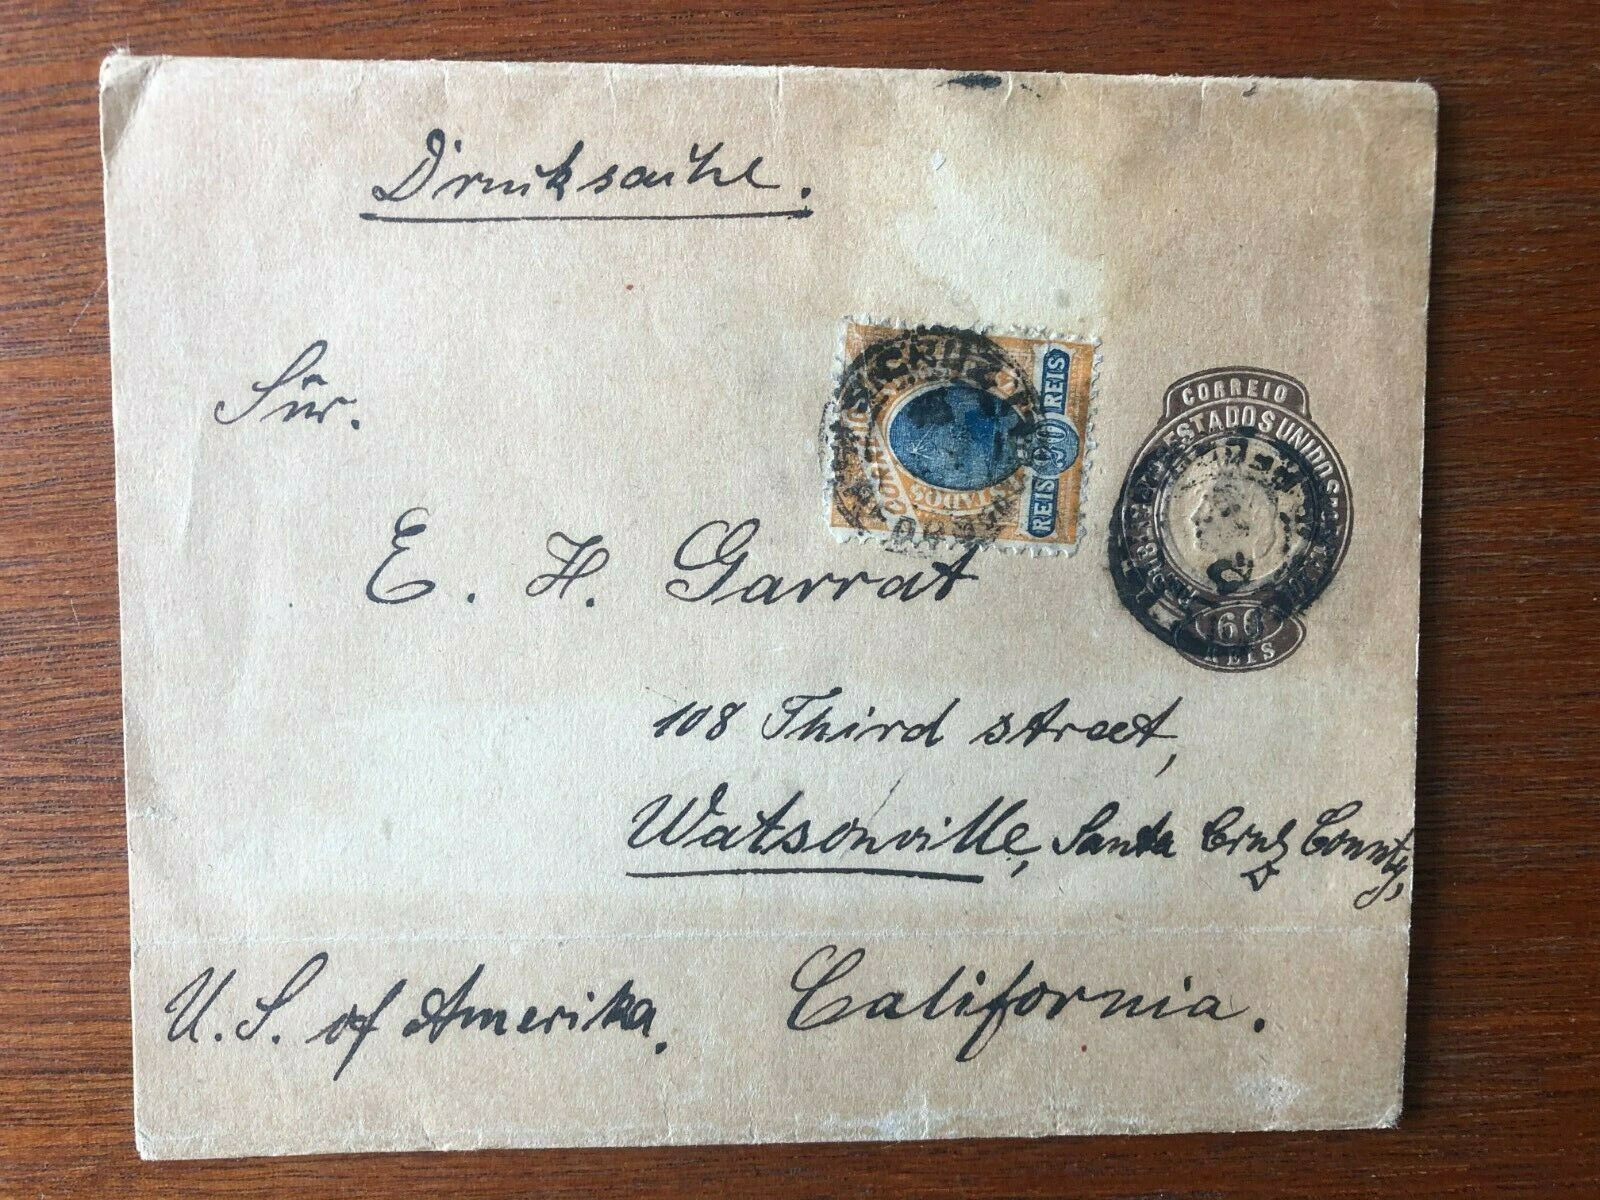 Drucksache.
Für.
E. H. Garrat
108 Third street,
Watsonville, Santa Cruz County,
U. S. of Amerika. California.
CORREIO
ESTADOS
REIS 20 REIS
CORREIO
ESTADOS UNIDOS
60
REIS